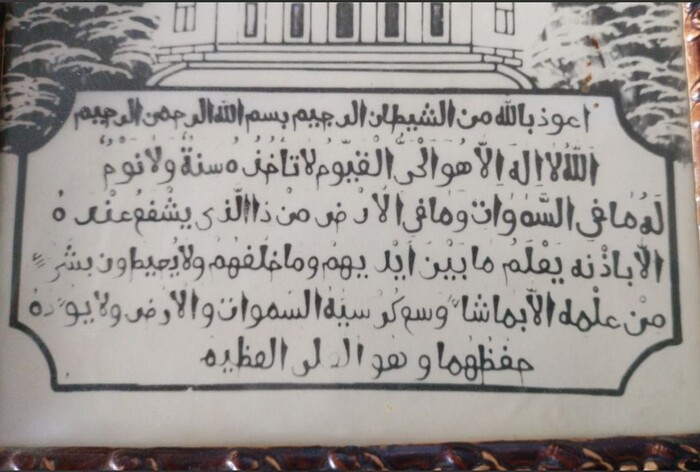 اعوذ بالله من الشيطان الرجيم بسم الله الرحمن الرحيم
اَللّٰهُ لَا اِلٰهَ اِلَّا هُوَ الْحَىُّ الْقَيُّومُ لَا تَأْخُذُهُ سِنَةٌ وَلَا نَوْمٌ
لَهُ مَا فِى السَّمٰوَاتِ وَمَا فِى الْاَرْضِ مَنْ ذَا الَّذِى يَشْفَعُ عِنْدَهُ
اِلَّا بِاِذْنِهِ يَعْلَمُ مَا بَيْنَ اَيْدِيهِمْ وَمَا خَلْفَهُمْ وَلَا يُحِيطُونَ بِشَىْءٍ
مِنْ عِلْمِهِ اِلَّا بِمَا شَاءَ وسع كرسيه السموات والارض ولا يوده
حفظهما وهو العلى العظيم